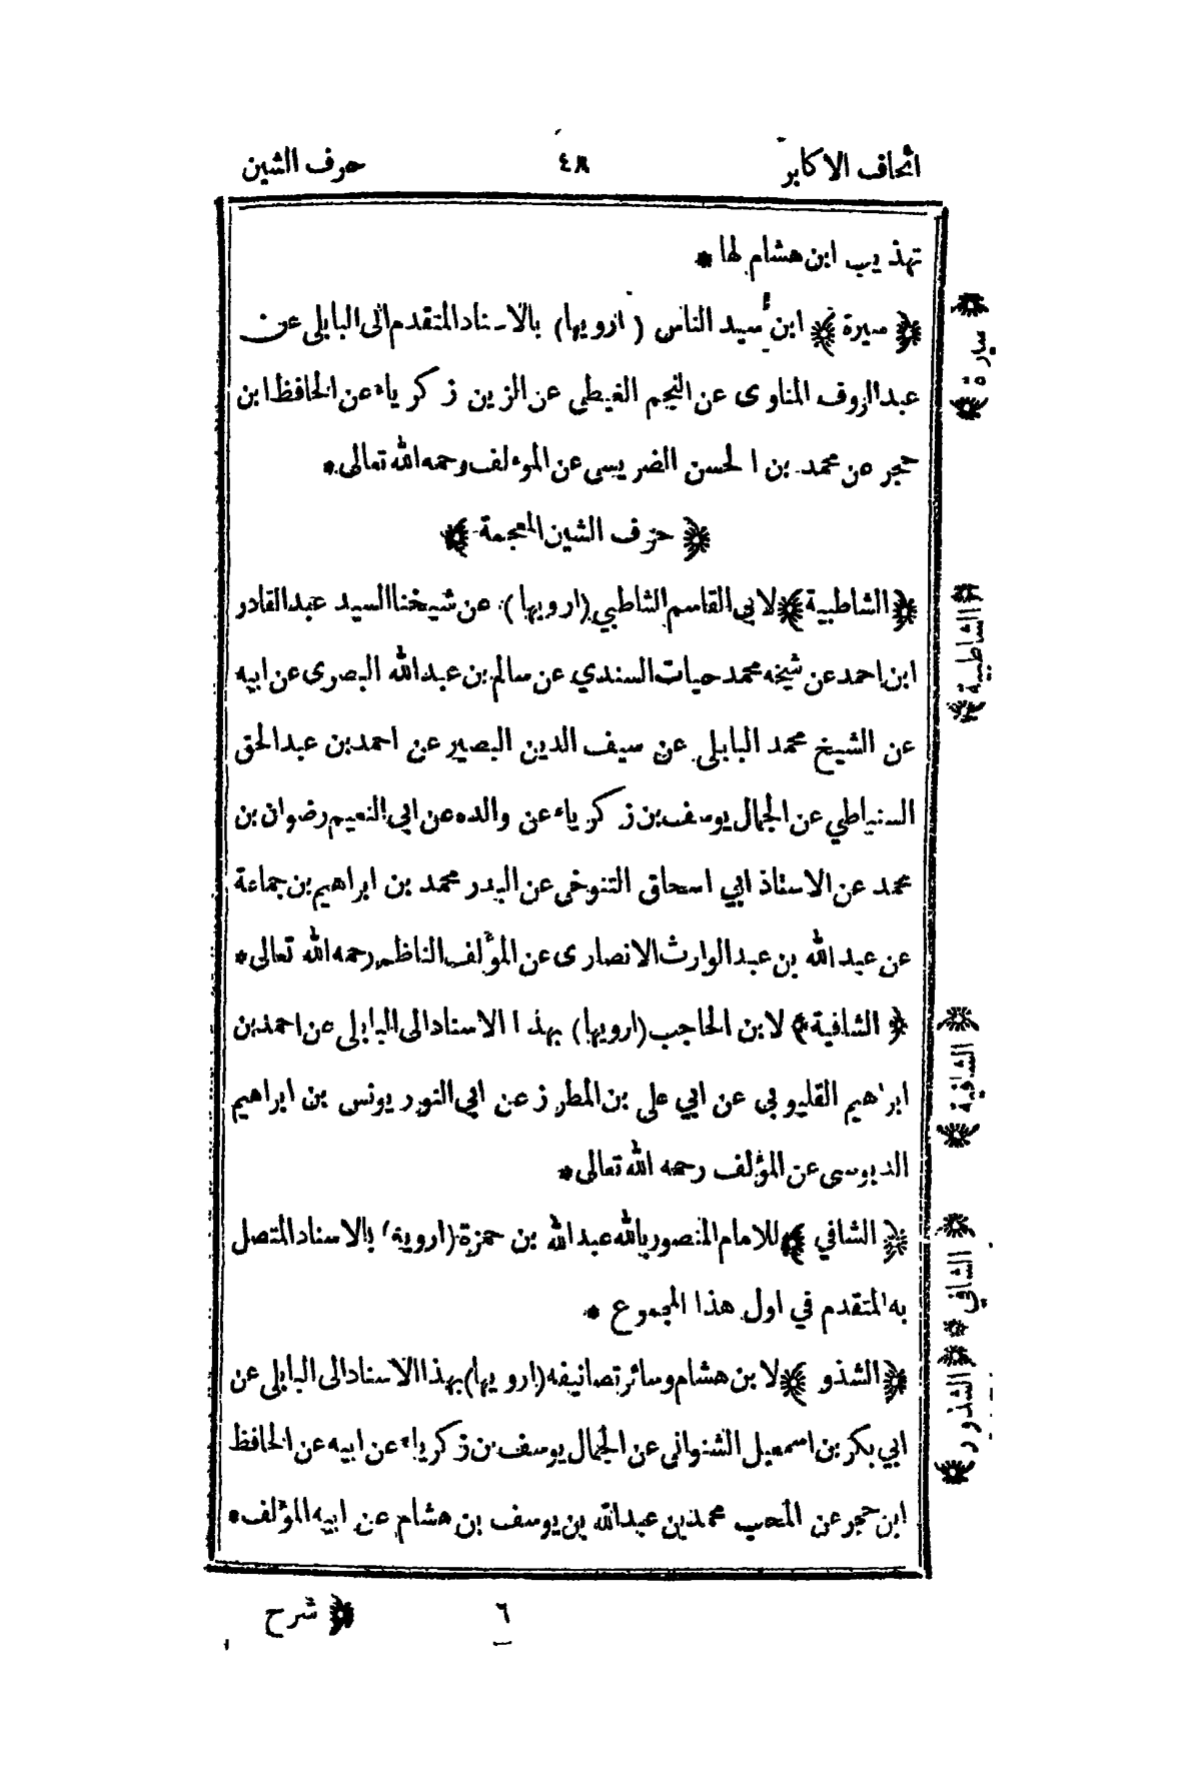 اتحاف الاكابر ٤٨ حرف الشين
تهذيب ابن هشام لها *
﴿ سيرة ﴾ ابن سيد الناس ( ارويها) بالاسناد المتقدم الى البابلى عن
عبد الروف المناوى عن النجم الغيطى عن الزين زكرياء عن الحافظ ابن
حجر عن محمد بن الحسن الضريسى عن الموءلف رحمه الله تعالى *
﴿ حرف الشين المعجمة ﴾
﴿ الشاطبية ﴾ لابى القاسم الشاطبي (ارويها) عن شيخنا السيد عبد القادر
ابن احمد عن شيخه محمد حيات السندي عن سالم بن عبد الله البصرى عن ابيه
عن الشيخ محمد البابلى عن سيف الدين البصير عن احمد بن عبد الحق
السنباطي عن الجمال يوسف بن زكرياء عن والده عن ابى النعيم رضوان بن
محمد عن الاستاذ ابي اسحاق التنوخى عن البدر محمد بن ابراهيم بن جماعة
عن عبد الله بن عبد الوارث الانصارى عن المؤلف الناظم رحمه الله تعالى *
﴿ الشافية ﴾ لابن الحاجب (ارويها) بهذا الاسناد الى البابلى عن احمد بن
ابراهيم القليوبى عن ابي على بن المطرز عن ابى النور يونس بن ابراهيم
الدبوسى عن المؤلف رحمه الله تعالى *
﴿ الشافي ﴾ للامام المنصور بالله عبد الله بن حمزة (ارويه) بالاسناد المتصل
به المتقدم في اول هذا المجموع *
﴿ الشذو ﴾ لابن هشام وسائر تصانيفه (ارويها) بهذا الاسناد الى البابلى عن
ابي بكر بن اسمعيل الشنوانى عن الجمال يوسف بن زكرياء عن ابيه عن الحافظ
ابن حجر عن المحب محمد بن عبد الله بن يوسف بن هشام عن ابيه المؤلف *
﴿ شرح
٦
﴿ سيرة ﴾
﴿ الشاطبية ﴾
﴿ الشافية ﴾
﴿ الشافي ﴾
﴿ الشذور ﴾